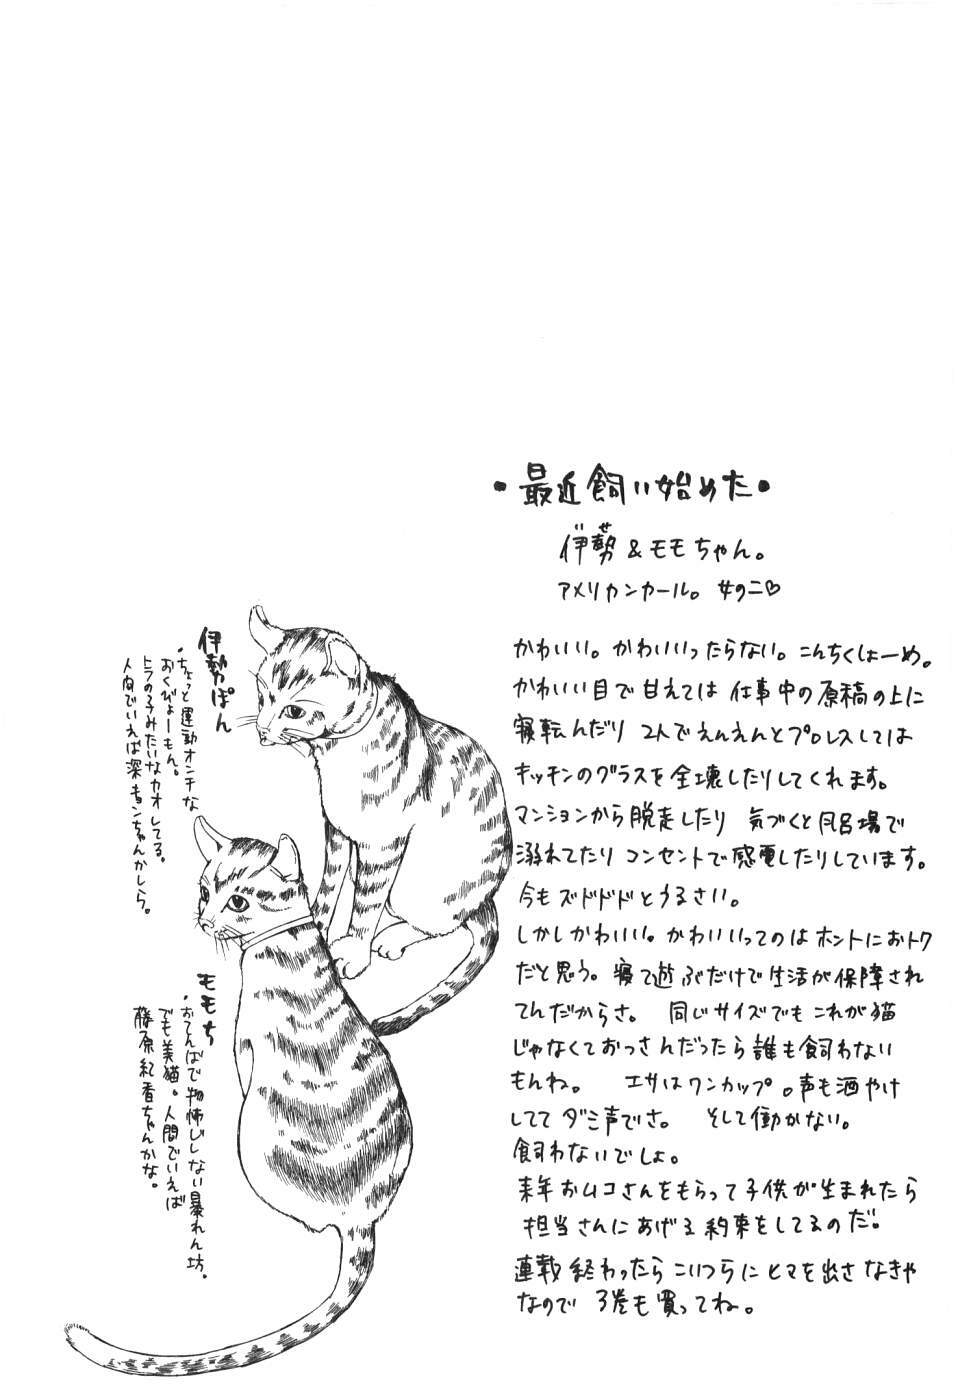 ・最近飼い始めた・
伊勢&モモちゃん。
アメリカンカール。女のコ♡
かわいい。かわいいったらない。こんちくしょーめ。
かわいい目で甘えては仕事中の原稿の上に
寝転んだり 2人でえんえんとプロレスしては
キッチンのグラスを全壊したりしてくれます。
マンションから脱走したり 気づくと風呂場で
溺れてたり コンセントで感電したりしています。
今もズドドドとうるさい。
しかしかわいい。かわいいってのはホントにおトク
だと思う。寝て遊ぶだけで生活が保障され
てんだからさ。 同じサイズでもこれが猫
じゃなくておっさんだったら誰も飼わない
もんね。 エサはワンカップ。声も酒やけ
しててダミ声でさ。 そして働かない。
飼わないでしょ。
来年おムコさんをもらって子供が生まれたら
担当さんにあげる約束をしてるのだ。
連載終わったらこいつらにヒマを出さなきゃ
なので3巻も買ってね。
伊勢ぽん
・ちょっと運動オンチな
おくびょーもん。
トラの子みたいなカオしてる。
人間でいえば深キョンちゃんかしら。
ももち
・おてんばで物怖じしない暴れん坊。
でも美猫。人間でいえば
藤原紀香ちゃんかな。